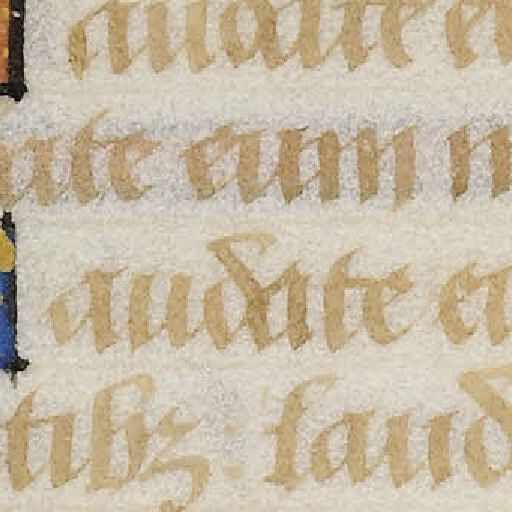 audite e
ate eum in
audate eu
tibꝫ: laud